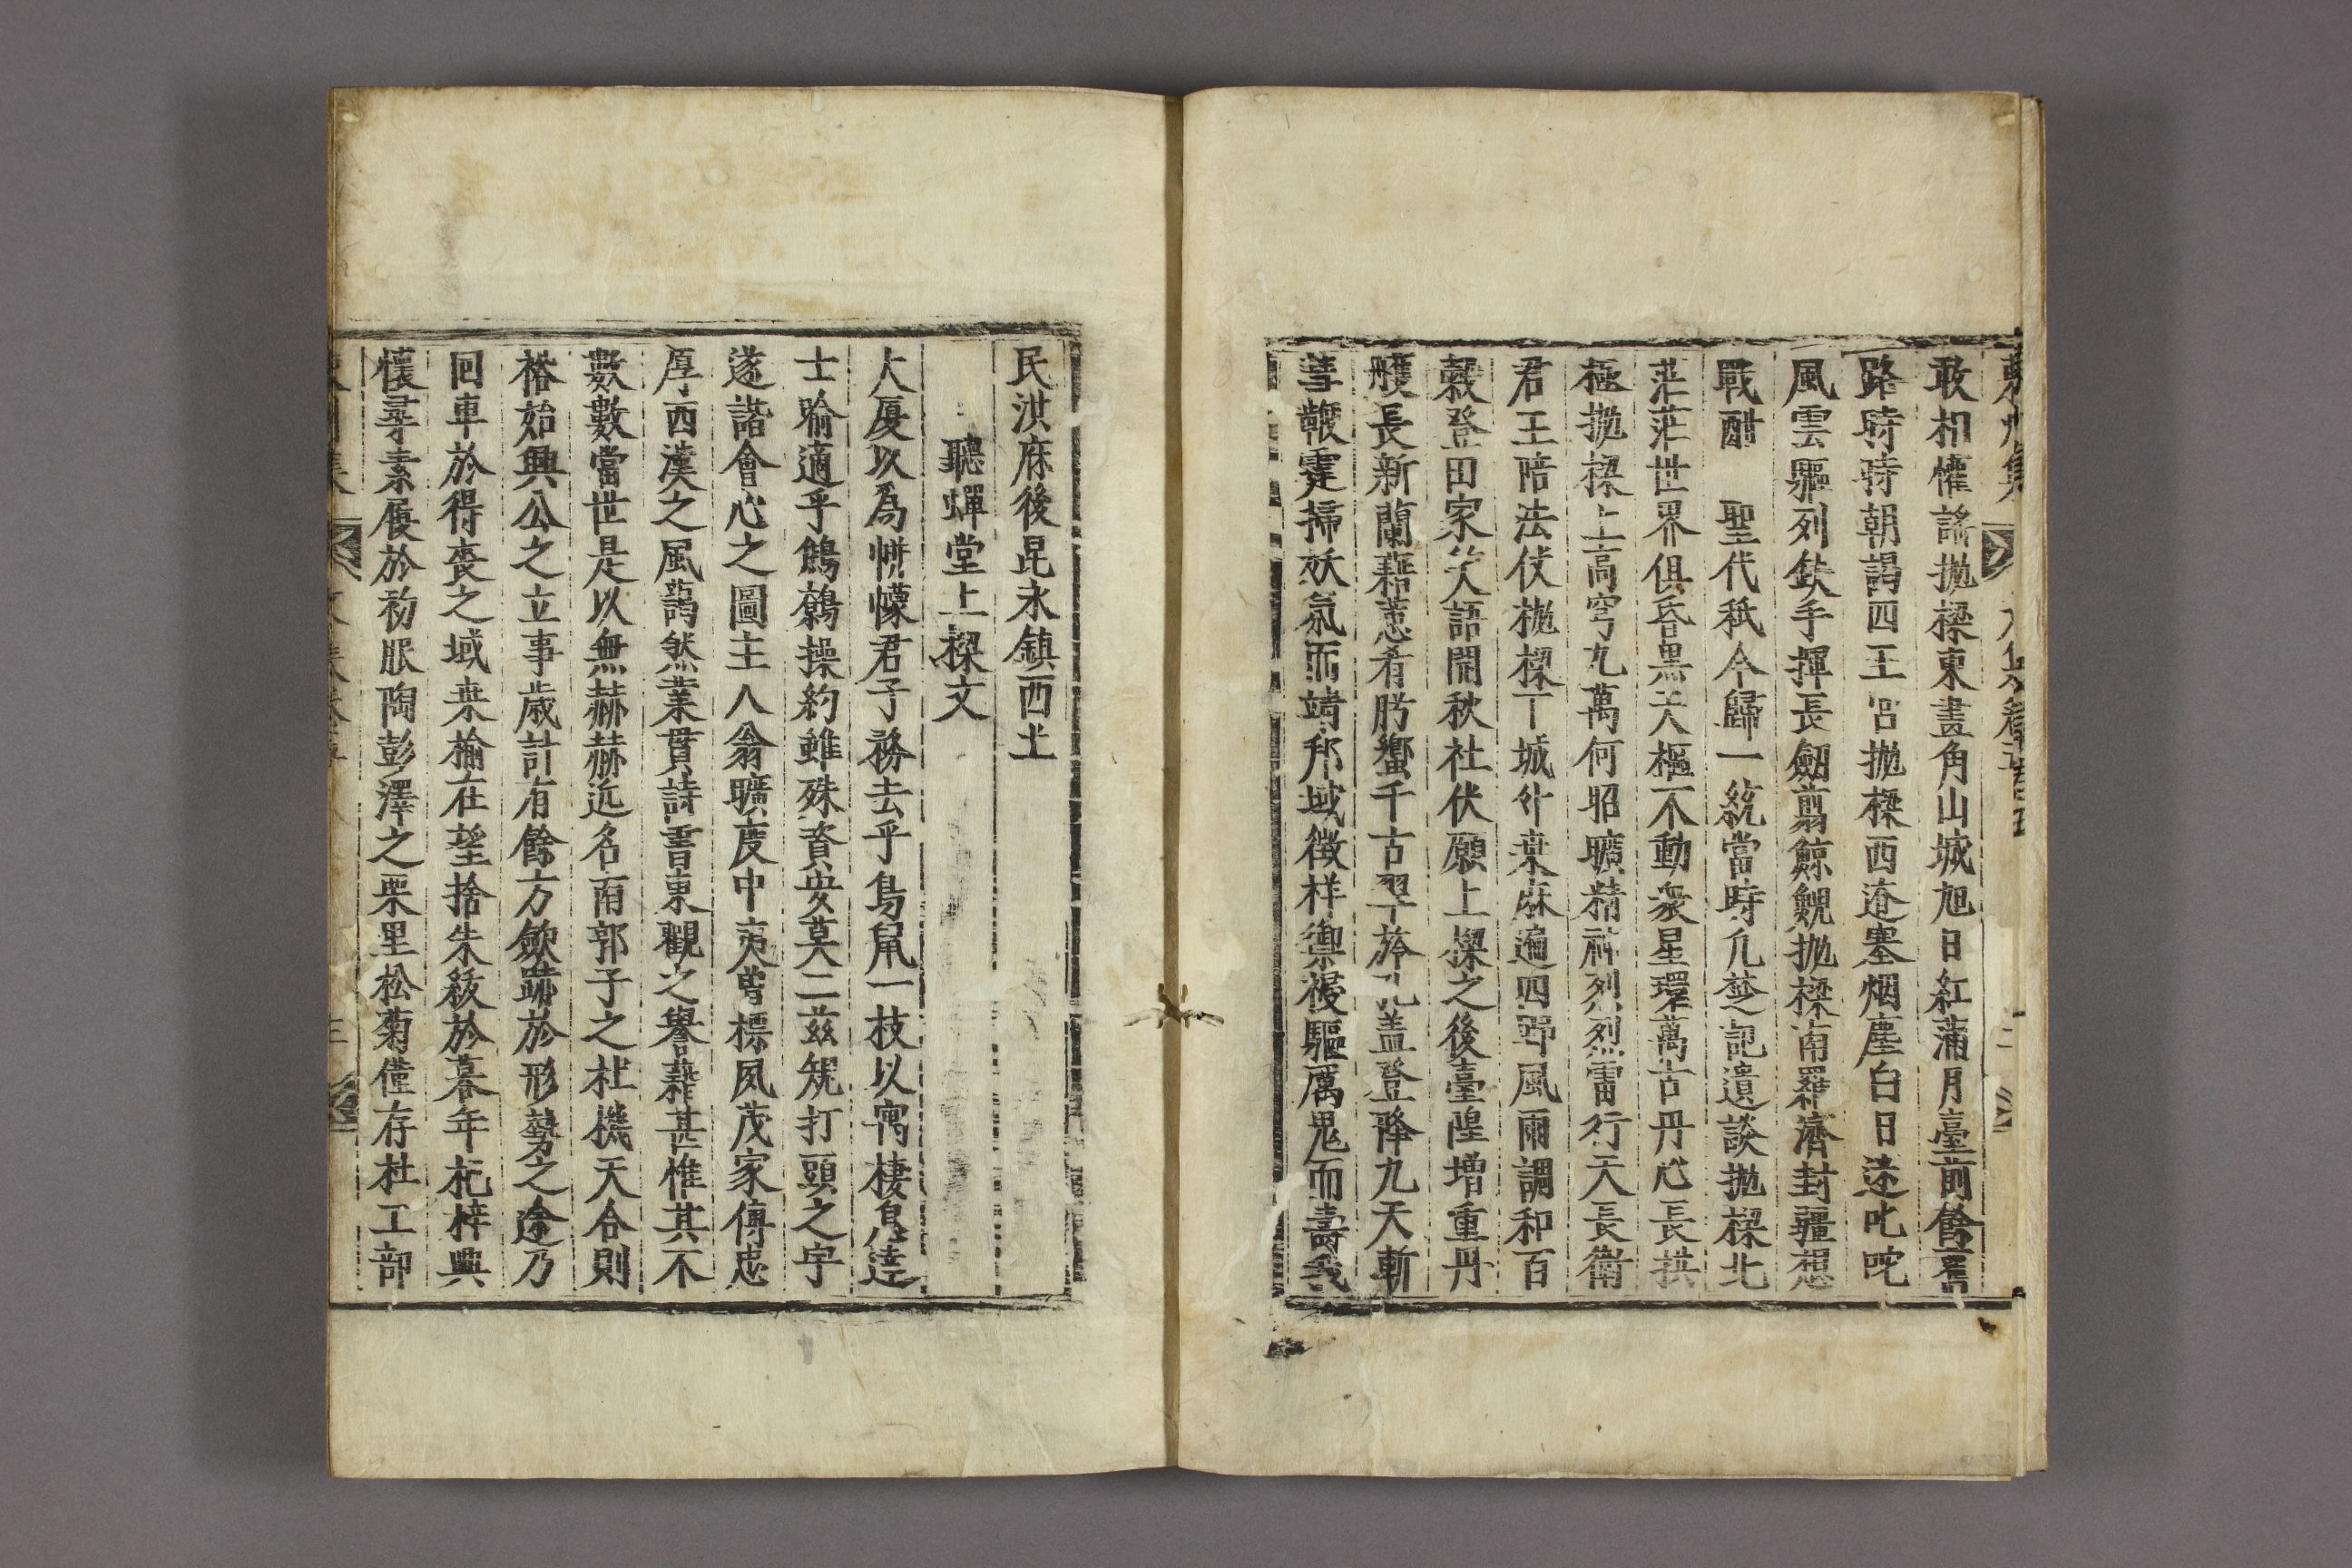 敢相懽謠抛樑東畫角山城旭日紅蒲月臺前餘舊
路時時朝謁四王宮抛樑西遼塞烟塵白日迷叱咤
風雲驅列鈇手揮長劒翦鯨鯢抛樑南羅濟封疆想
戰酣 聖代秖今歸一統當時凡楚記遺談抛樑北
茫茫世界俱昏黑天樞不動衆星環萬古丹心長拱
極抛樑上高穹九萬何昭曠精神烈烈雷行天長衛
君王陪法仗抛樑下城外桑麻遍四野風雨調和百
糓登田家笑語閙秋社伏願上樑之後臺隍增重丹
雘長新蘭藉蕙肴肹蠁千古翠旂孔盖登降九天斬
彗鞭霆掃妖氛而靖邦域徵祥禦祲驅厲鬼而壽我
民洪庥後昆永鎮西土
聽蟬堂上樑文
大厦以爲帡幪君子務去乎鳥鼠一枝以寓棲息達
士喻適乎鷦鷯操約雖殊資安莫二玆䂓打頭之宇
遂諧會心之圖主人翁曠度中夷曾標夙茂家傳忠
厚西漢之風藹然業貫詩書東觀之譽藉甚惟其不
數數當世是以無赫赫近名南郭子之杜機天合則
椿始興公之立事歲計有餘方歛蹟於形勢之途乃
回車於得喪之域桑楡在望捨朱紱於暮年杞梓興
懷尋素履於初服陶彭澤之栗里松菊僅存杜工部